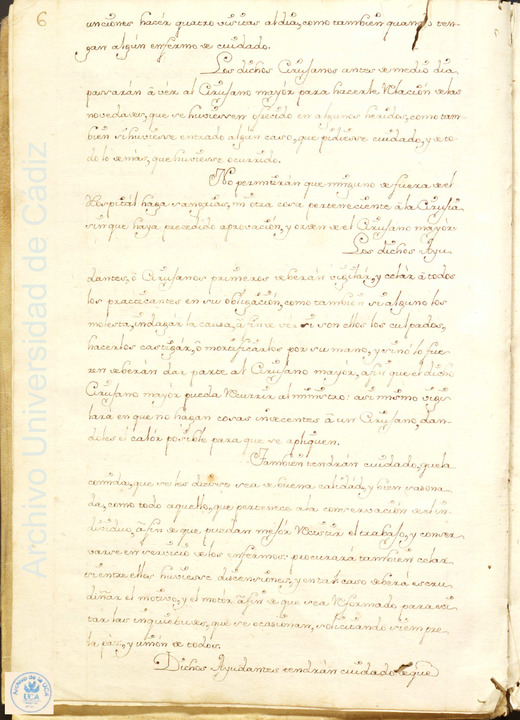 6
unciones hacér quatro visitas al dia, como tambien quando ten-
gan algún enfermo de cuidado.
Los dichos Cirujanos antes de medio dia,
passarán â vér al Cirujano mayór para hacerle relación de las
novedades, que se huviessen ofrecido en algunos heridos, como tam-
bien si huviesse entrado algún caso, que pidiesse cuidado, y de to-
do lo demàs, que huviesse ocurrido.
No permitirán que ninguno de fuera de el
Hospitál haga sangrias, ni otra cosa perteneciente â la Cirujía
sin que haya precedido aprovación, y orden de el Cirujano mayór.
Los dichos Ayu-
dantes, ô Cirujanos primeros deberán vigilár, y celár â todos
los practicantes en su obligación, como tambien si alguno los
molesta, indagár la causa, â fin de ver si son ellos los culpados,
hacerlos castigár, ô mortificarlos por su mano, y sinó lo fue-
ren deberán dar parte al Cirujano mayór, afin que el dicho
Cirujano mayór pueda recurrir al ministro: asi mismo vigi-
lará en que no hagan cosas indecentes â un Cirujano, dan-
doles el calór posible para que se apliquen.
Tambien tendrán cuidado, que la
comida, que se les diere sea de buena calidad, y bien sazona-
da, como todo aquello, que pertenece a la conservación de el in-
dividuo, âfin de que, puedan mejór resistir el trabajo, y conser-
varse en servicio de los enfermos: procurará tambien celár
si entre ellos huviesse discensiones, y en tal caso deberá escru-
diñar el motivo, y el motor âfin de que sea reformado para evi-
tar las inquietudes, que se ocasionan, solicitando siempre
la páz, y unión de todos.
Dichos Ayudantes tendrán cuidado de que
Archivo Universidad de Cádiz
Archivo de la UCA
UCA